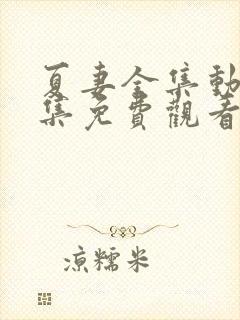 夏妻全集動
集免費觀看
涼糯米